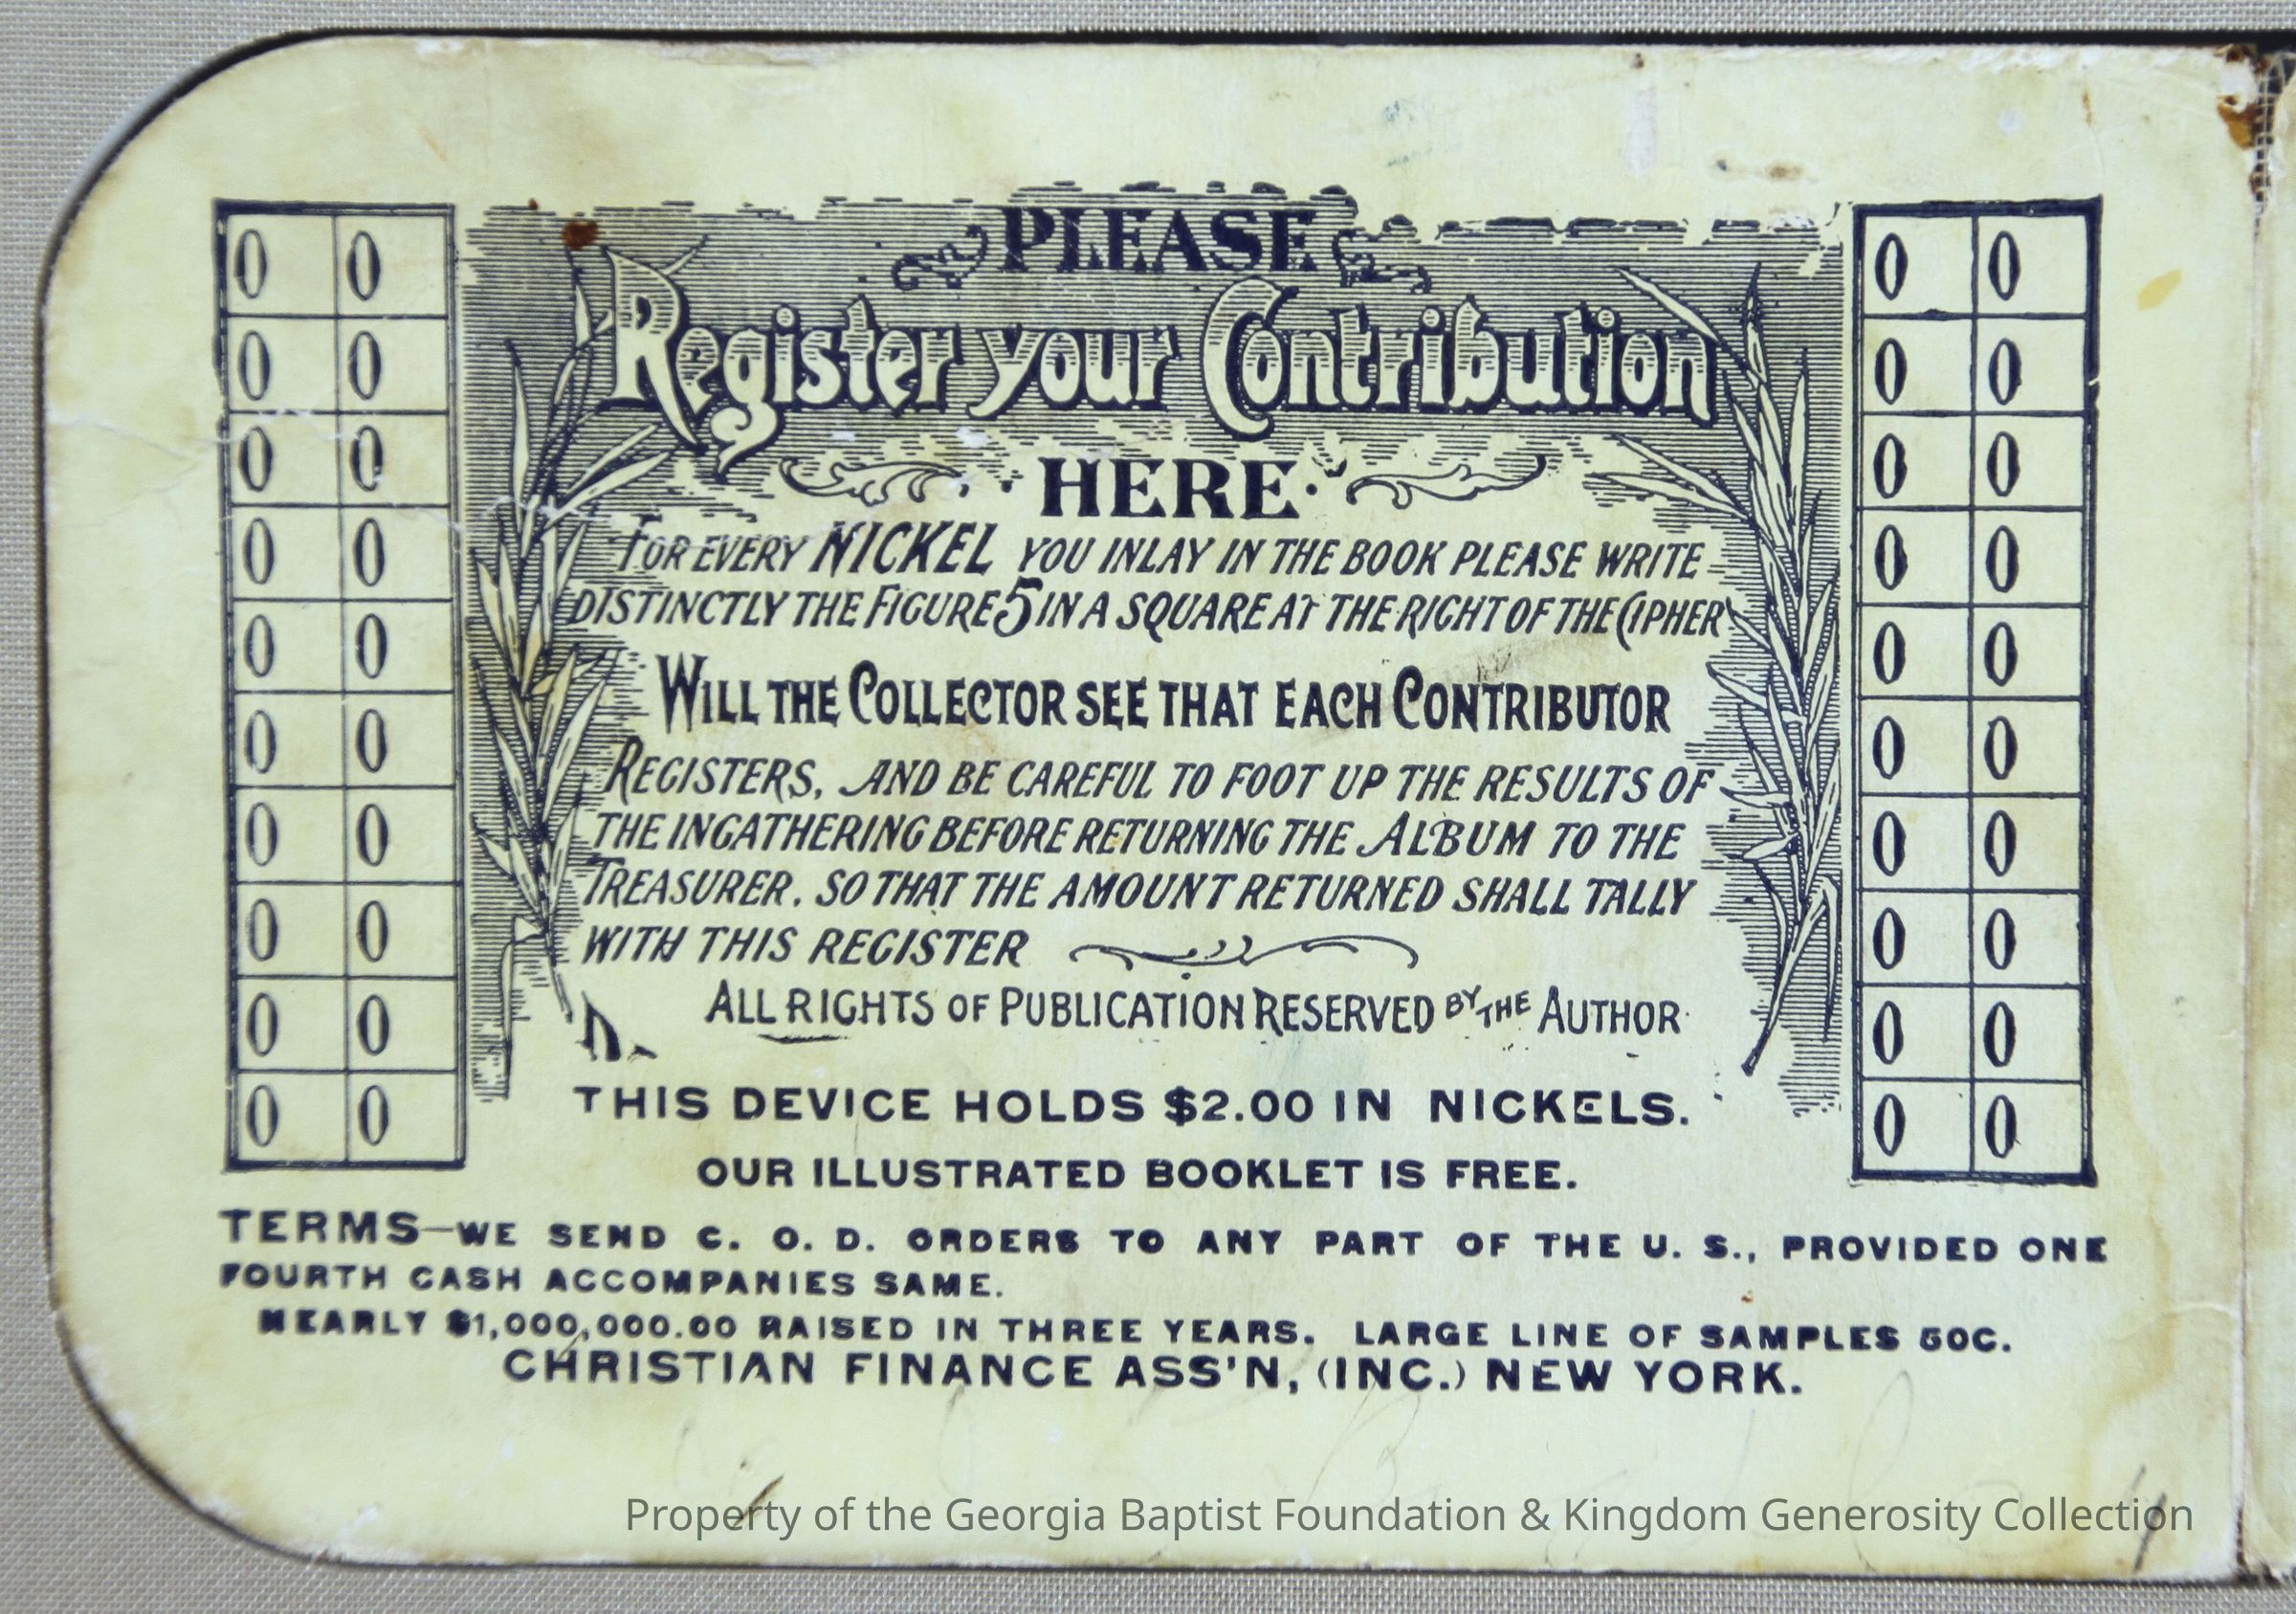 PLEASE
Register your Contribution
HERE
FOR EVERY NICKEL YOU INLAY IN THE BOOK PLEASE WRITE
DISTINCTLY THE FIGURE 5 IN A SQUARE AT THE RIGHT OF THE CIPHER
WILL THE COLLECTOR SEE THAT EACH CONTRIBUTOR
REGISTERS, AND BE CAREFUL TO FOOT UP THE RESULTS OF
THE INGATHERING BEFORE RETURNING THE ALBUM TO THE
TREASURER. SO THAT THE AMOUNT RETURNED SHALL TALLY
WITH THIS REGISTER
ALL RIGHTS OF PUBLICATION RESERVED BY THE AUTHOR
0 0 0 0
0 0 0 0
0 0 0 0
0 0 0 0
0 0 0 0
0 0 0 0
0 0 0 0
0 0 0 0
0 0 0 0
0 0 0 0
THIS DEVICE HOLDS $2.00 IN NICKELS.
OUR ILLUSTRATED BOOKLET IS FREE.
TERMS—WE SEND C. O. D. ORDERS TO ANY PART OF THE U. S., PROVIDED ONE
FOURTH CASH ACCOMPANIES SAME.
NEARLY $1,000,000.00 RAISED IN THREE YEARS. LARGE LINE OF SAMPLES 50C.
CHRISTIAN FINANCE ASS'N, (INC.) NEW YORK.
Property of the Georgia Baptist Foundation & Kingdom Generosity Collection